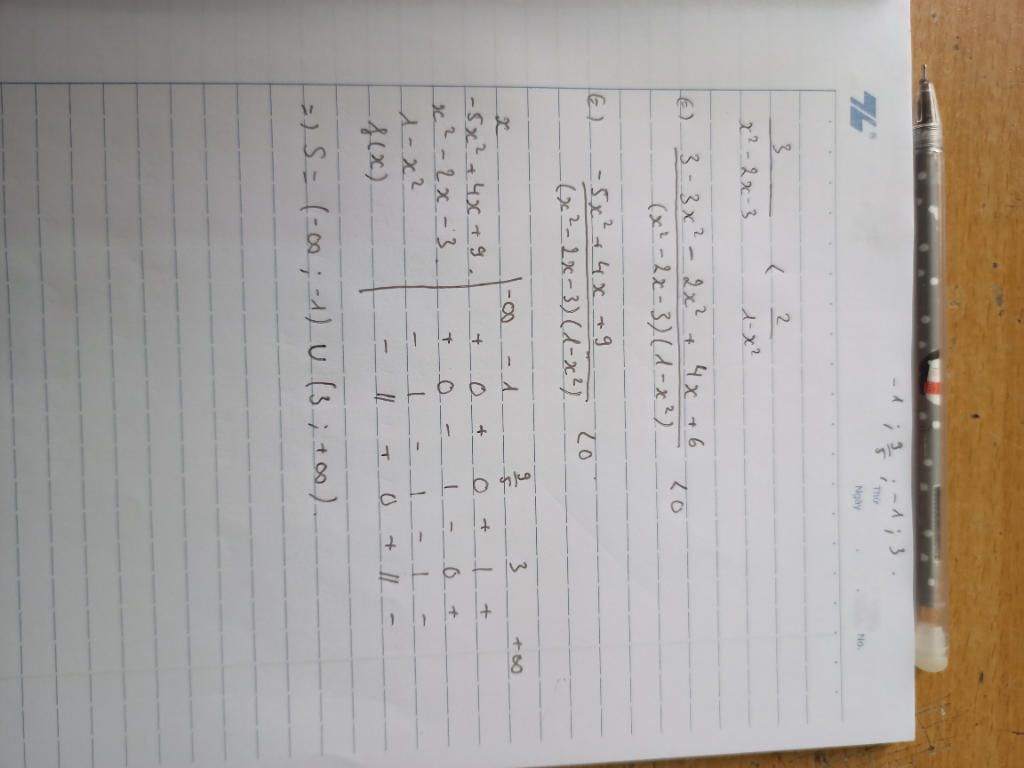 TL®
Thứ
Ngày
No.
-1 ; 9/5 ; -1 ; 3 .
3/(x² - 2x - 3) < 2/(1 - x²)
(=) (3 - 3x² - 2x² + 4x + 6)/((x² - 2x - 3)(1 - x²)) < 0
(=) (-5x² + 4x + 9)/((x² - 2x - 3)(1 - x²)) < 0.
x | -∞ -1 9/5 3 +∞
-5x² + 4x + 9. | + 0 + 0 + | +
x² - 2x - 3. | + 0 - | - 0 +
1 - x² | - | - | - | -
f(x) | - || + 0 + || -
=) S = (-∞ ; -1) ∪ (3 ; +∞).